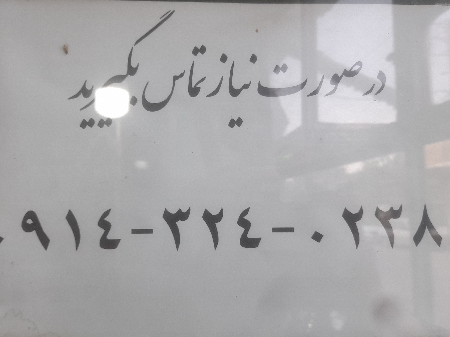 در صورت نیاز تماس بگیرید
۰۹۱٤-۳۲٤-۰۲۳۸